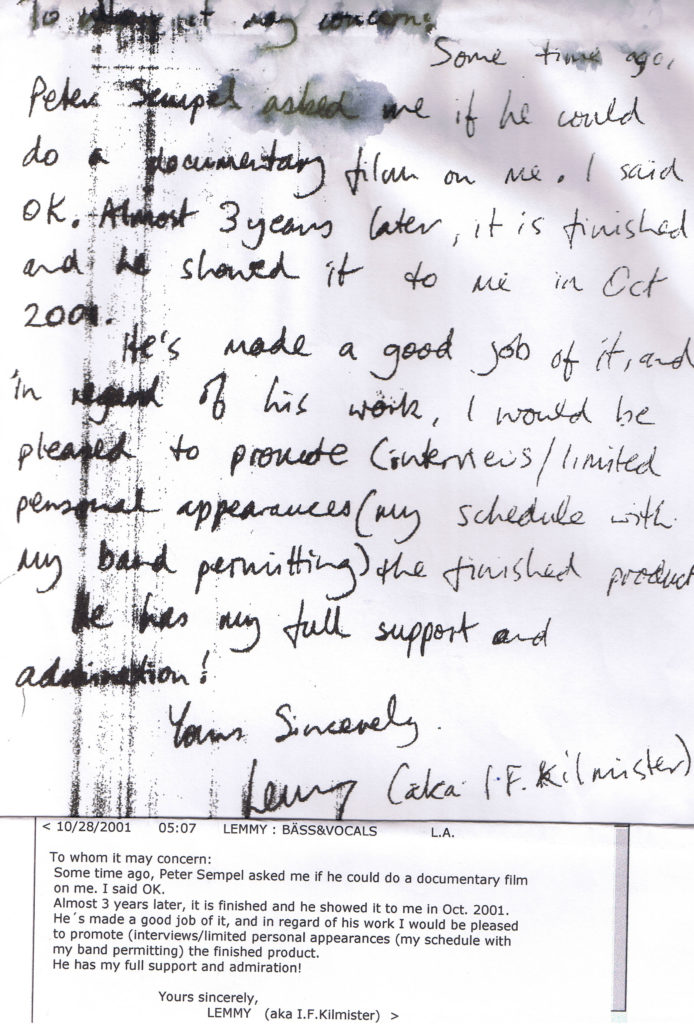 To whom it may concern:
Some time ago,
Peter Sempel asked me if he could
do a documentary film on me. I said
OK. Almost 3 years later, it is finished
and he showed it to me in Oct
2001.
He's made a good job of it, and
in regard of his work, I would be
pleased to promote (interviews/limited
personal appearances (my schedule with
my band permitting) the finished product
He has my full support and
admiration!
Yours Sincerely.
Lemmy (aka I.F. Kilmister)
< 10/28/2001 05:07 LEMMY : BÄSS&VOCALS L.A.
To whom it may concern:
Some time ago, Peter Sempel asked me if he could do a documentary film
on me. I said OK.
Almost 3 years later, it is finished and he showed it to me in Oct. 2001.
He´s made a good job of it, and in regard of his work I would be pleased
to promote (interviews/limited personal appearances (my schedule with
my band permitting) the finished product.
He has my full support and admiration!
Yours sincerely,
LEMMY (aka I.F.Kilmister) >